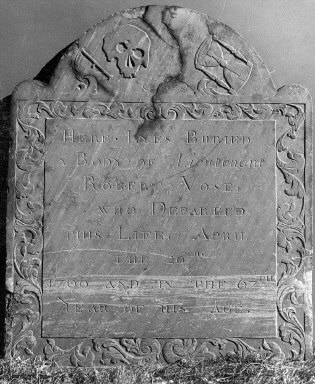 HERE LYES BURIED
Y BODY OF Lieutenant
ROBERT VOSE,
WHO DEPARTED
THIS LIFE, APRIL
THE 20TH
1760 AND IN THE 67TH
YEAR OF HIS AGE.